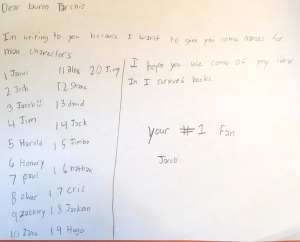 Dear Lauren Tarshis
Im writing to you because I want to give you some names for
main charectors
1 James
2 Josh
4 Jim
5 Harold
6 Henury
7 paul
8 Oliver
9 zachary
10 Zane
11 alex
12 Shane
13 david
14 Jack
15 Jimbo
16 nathan
17 Cris
18 Jackson
19 Hugo
20 Jimy
I hope you use some of my ideas
In I survived books.
your #1 Fan
Jacob